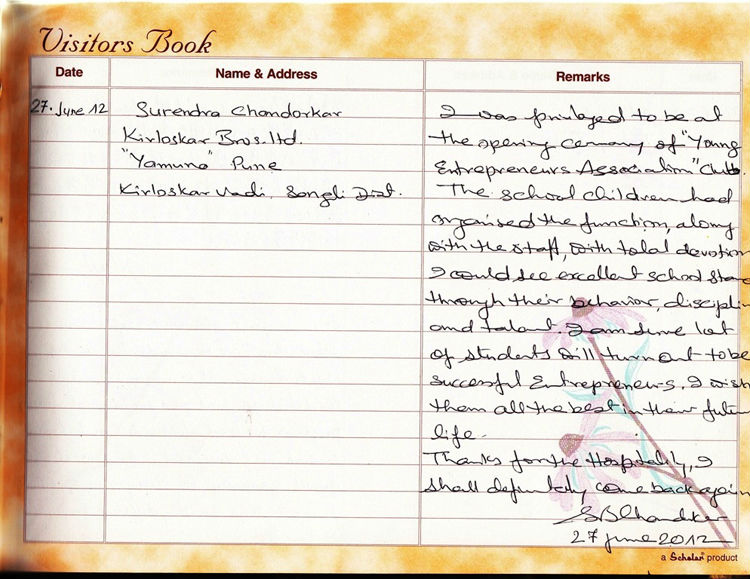 Visitors Book
Date
Name & Address
Remarks
27. June 12
Surendra Chandorkar
Kirloskar Bros. ltd.
"Yamuna" Pune
Kirloskar Vadi, Sangli Dist.
I was privileged to be at
the opening ceremony of "Young
Entrepreneurs Association" Club.
The school children had
organised the function, along
with the staff, with total devotion
I could see excellent school
through their behavior,
and talent. I am sure lot
of students will turn out to be
successful Entrepreneurs. I wish
them all the best in their future
life.
Thanks for the Hospitality, I
shall definitely come back again
27 June 2012
a Scholar product